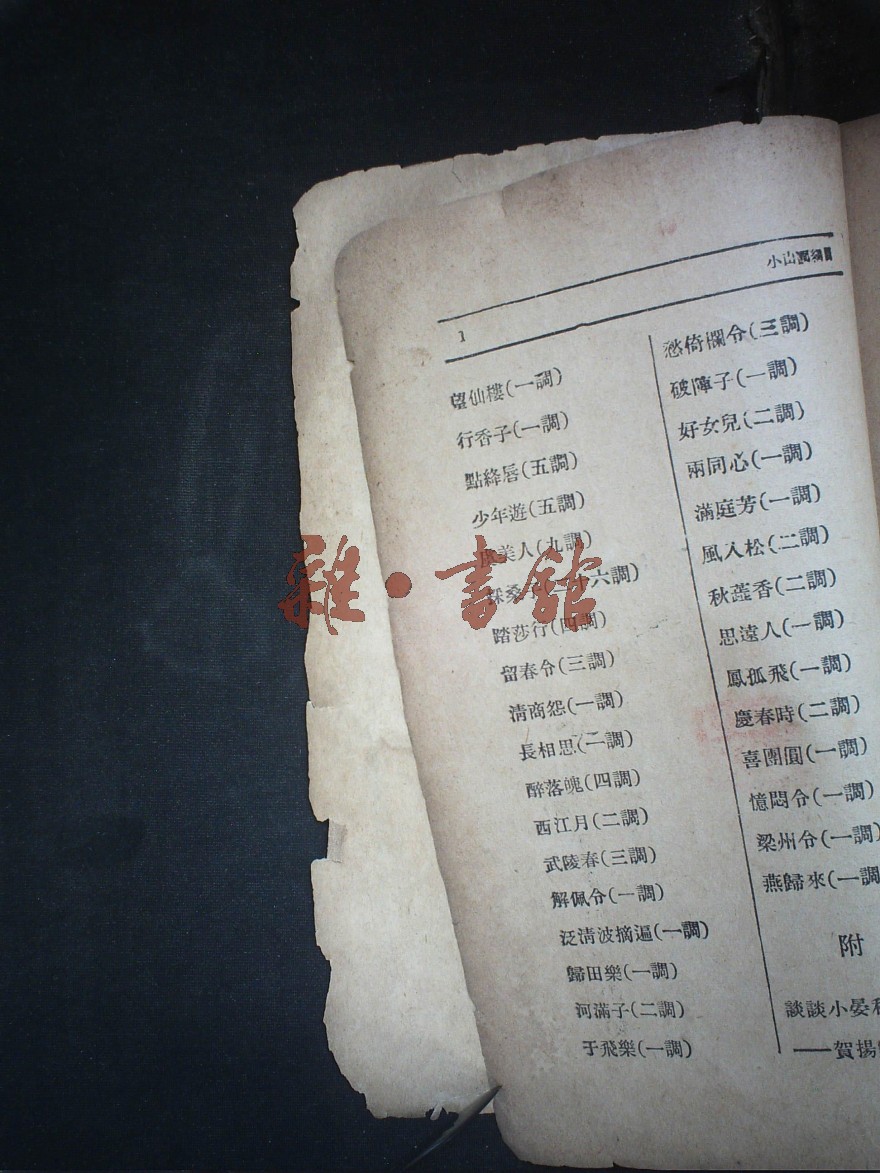 小山
1
望仙樓(一調)
行香子(一調)
點絳唇(五調)
少年遊(五調)
美人(九調)
採桑子(二十六調)
踏莎行(四調)
留春令(三調)
淸商怨(一調)
長相思(二調)
醉落魄(四調)
西江月(二調)
武陵春(三調)
解佩令(一調)
泛淸波摘遍(一調)
歸田樂(一調)
河滿子(二調)
于飛樂(一調)
愁倚欄令(三調)
破陣子(一調)
好女兒(二調)
兩同心(一調)
滿庭芳(一調)
風入松(二調)
秋蕋香(二調)
思遠人(一調)
鳳孤飛(一調)
慶春時(二調)
喜團圓(一調)
憶悶令(一調)
梁州令(一調)
燕歸來(一調
附
談談小晏
——賀揚
雜·書舘